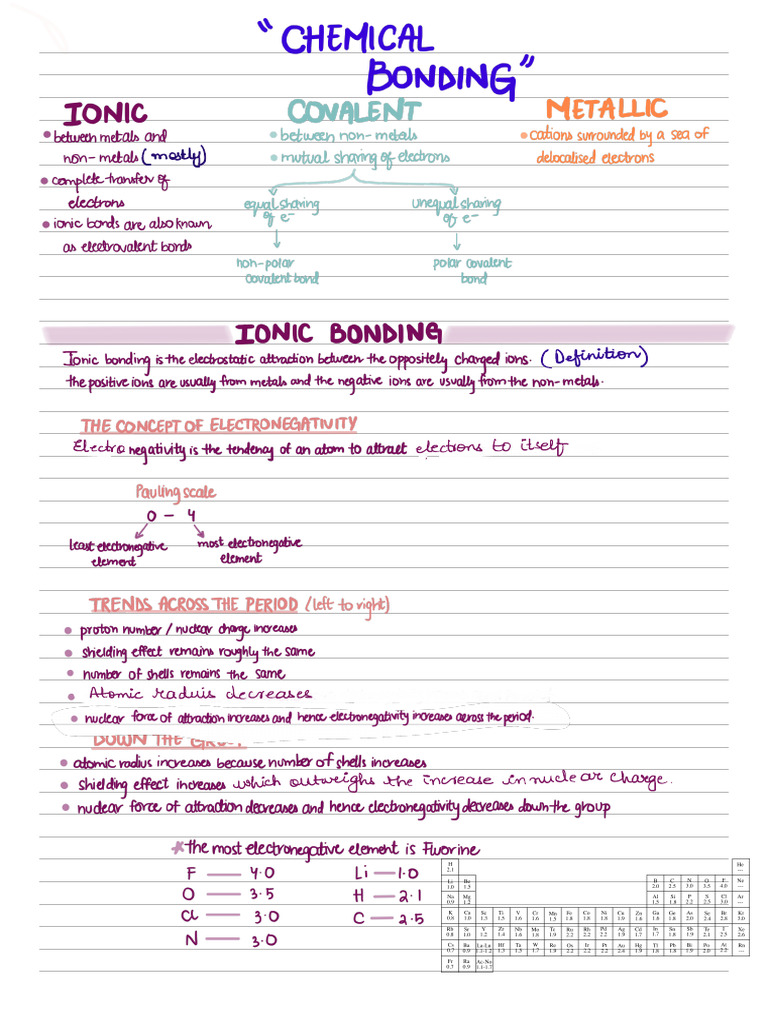 "CHEMICAL
BONDING"
IONIC
• between metals and
non-metals (mostly)
• complete transfer of
electrons
• ionic bonds are also known
as electrovalent bonds
COVALENT
• between non-metals
• mutual sharing of electrons
equal sharing
of e⁻
non-polar
covalent bond
unequal sharing
of e⁻
polar covalent
bond
METALLIC
• cations surrounded by a sea of
delocalised electrons
IONIC BONDING
Ionic bonding is the electrostatic attraction between the oppositely charged ions. (Definition)
the positive ions are usually from metals and the negative ions are usually from the non-metals.
THE CONCEPT OF ELECTRONEGATIVITY
Electronegativity is the tendency of an atom to attract electrons to itself
Pauling scale
0 – 4
least electronegative
element
most electronegative
element
TRENDS ACROSS THE PERIOD (left to right)
• proton number / nuclear charge increases
• shielding effect remains roughly the same
• number of shells remains the same
• Atomic raduis decreases
• nuclear force of attraction increases and hence electronegativity increases across the period.
DOWN THE GROUP
• atomic radius increases because number of shells increases
• shielding effect increases which outweighs the increase in nuclear charge.
• nuclear force of attraction decreases and hence electronegativity decreases down the group
* the most electronegative element is Fluorine
F — 4.0
O — 3.5
Cl — 3.0
N — 3.0
Li — 1.0
H — 2.1
C — 2.5
H He
2.1 ---
Li Be B C N O F Ne
1.0 1.5 2.0 2.5 3.0 3.5 4.0 ---
Na Mg Al Si P S Cl Ar
0.9 1.2 1.5 1.8 2.2 2.5 3.0 ---
K Ca Sc Ti V Cr Mn Fe Co Ni Cu Zn Ga Ge As Se Br Kr
Rb Sr Y Zr Nb Mo Tc Ru Rh Pd Ag Cd In Sn Sb Te I Xe
Cs Ba La-Lu Hf Ta W Re Os Ir Pt Au Hg Tl Pb Bi Po At Rn
Fr Ra Ac-No
0.7 0.9 1.1-1.7